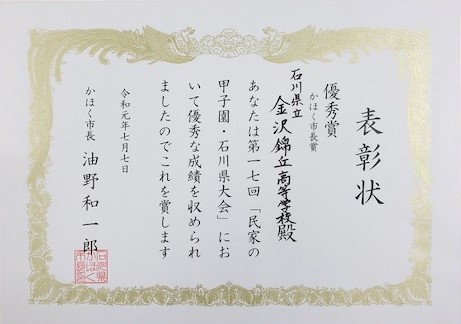 表彰状
優秀賞
かほく市長賞
石川県立
金沢錦丘高等学校殿
あなたは第一七回「民家の
甲子園・石川県大会」にお
いて優秀な成績を収められ
ましたのでこれを賞します
令和元年七月七日
かほく市長 油野和一郎